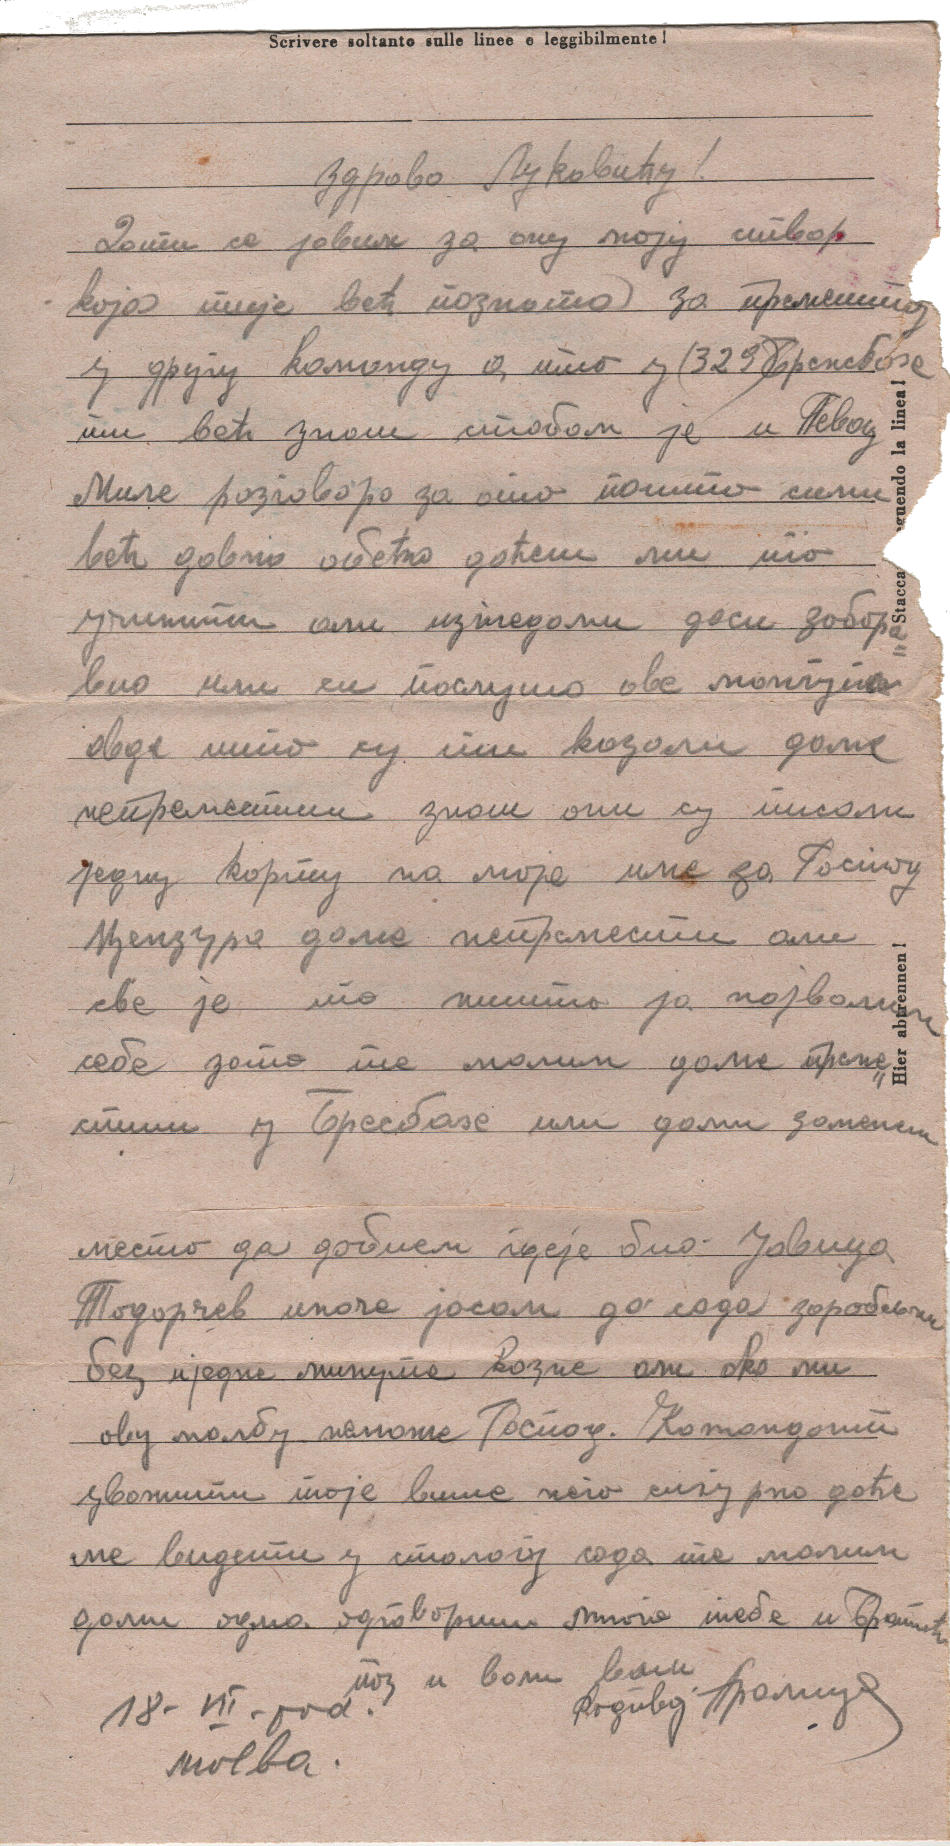 Scrivere soltanto sulle linee e leggibilmente!
Здраво Луковићу!
ти се јавим за ону моју ствар
која тије већ позната за премештај
у другу команду а то у (329) Брежбазе
ти већ знаш стобом је и Певац
Миле разговоро за ото пошто сими
већ давно обећао даћеш ми то
учинити али изгледами даси забора
вио или си послушо ове
овде што су ти казали даме
непреместиш знаш они су писали
једну карту на моје име за Госпоу
Цензура даме непремести али
све је то ништа ја најволим
себе зато те молим даме преме
стиш у Бресбазе или дами замениш
место да добием гдеје био Јовица
Тодорчев иначе јасам до сада заробљен
без иједне минута казне али ако ми
ову молбу неможе Госпоу. Командант
уважити тоје више него сигурно даће
ме видети у сталагу сада те молим
дами одма одговориш много тебе и
поз и воли ваш
18- VII -год.
Малица
Stacca
guendo la linea!
Hier abtrennen!